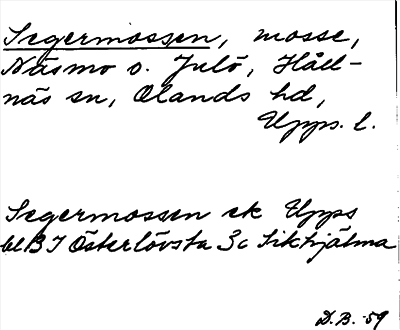 Segermossen, mosse,
Näsmo o. Julö, Håll-
näs sn, Olands hd,
Upps. l.
Segermossen ek Upps
bl B I Österlövsta 3c Sikhjälma
D.B. 59